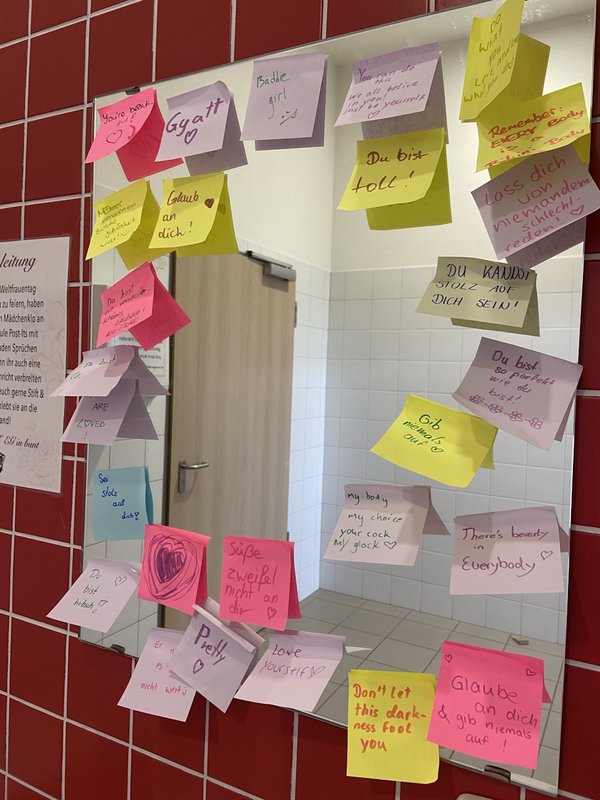 You're beauti-
ful!
Gyatt
Baddie
girl
You can do
this
We all belive
in you!
Just be yourself
DO
What
you
Remember:
EVERY Body
is a
Bikini-Body
Glaub
an
dich!
Du bist
toll!
Lass dich
von
niemandem
schlecht-
reden
Du hast
DU KANNST
STOLZ AUF
DICH SEIN!
eitung
Weltfrauentag
zu feiern, haben
m Mädchenklo an
ule Post-Its mit
nden Sprüchen
nn ihr auch eine
hricht verbreiten
euch gerne Stift &
klebt sie an die
and!
EG in bunt
ARE
LOVED
!
Du bist
so perfekt
wie du
bist!
Gib
niemals
auf
Sei
stolz
auf
dich!
my body
my choice
your cock
my glock
There's beauty
in
Everybody
Du
bist
hübsch!
Süße
zweifel
nicht an
dir
Er
is
nicht wert
Pretty
Love
yourself
Don't let
this dark-
ness fool
you
Glaube
an dich
& gib niemals
auf!